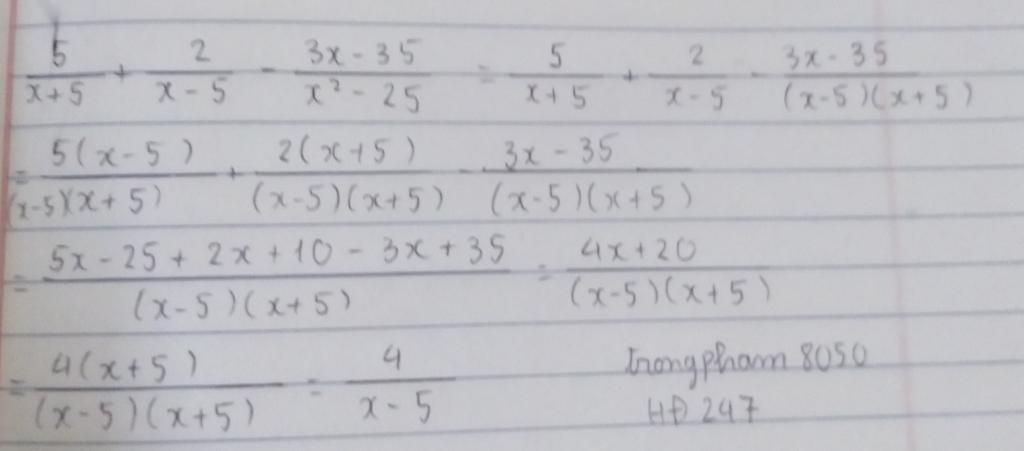 5/(x+5) + 2/(x-5) - (3x-35)/(x²-25) = 5/(x+5) + 2/(x-5) - (3x-35)/((x-5)(x+5))
= 5(x-5)/((x-5)(x+5)) + 2(x+5)/((x-5)(x+5)) - (3x-35)/((x-5)(x+5))
= (5x-25+2x+10-3x+35)/((x-5)(x+5)) = (4x+20)/((x-5)(x+5))
= 4(x+5)/((x-5)(x+5)) = 4/(x-5)
trongpham 8050
HĐ 247